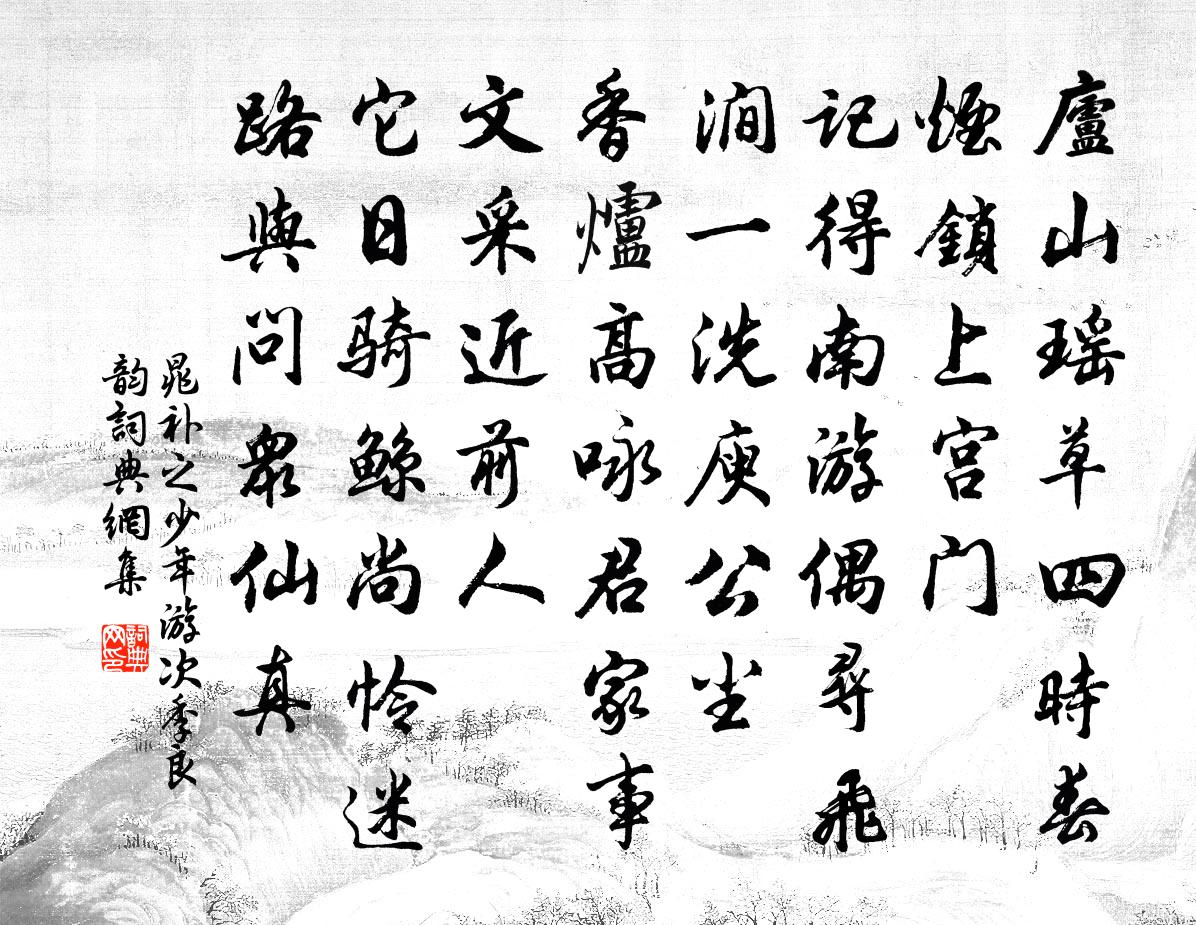 廬山瑶草四時春
煙鎖上宫门
記得南游偶尋飛
澗一洗庾公尘
香爐高咏君家事
文采近前人
它日骑鯨尚怜迷
路與问眾仙真
晁补之少年游次季良
韵詞典網集
詞典
网印